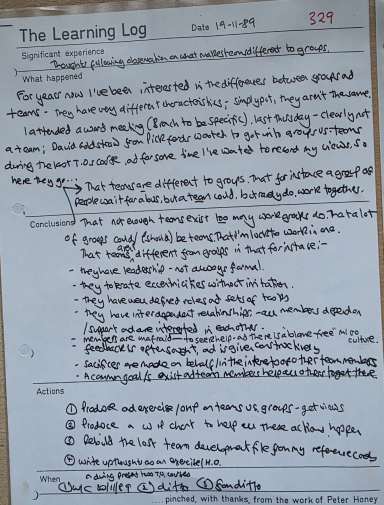 329
The Learning Log Date 19-11-89
Significant experience
Thoughts following observation on what makes teams different to groups.
What happened
For years now I've been interested in the differences between groups and
teams - they have very different characteristics; simply put, they aren't the same.
I attended a meeting (Branch to be specific), last thursday - clearly not
a team; David from Pickfords wanted to get into groups vs teams
during the last T.O.S course, and for some time I've wanted to record my views, so
here they go...
That teams are different to groups. That for instance a group of
people wait for a bus, but a team could, but rarely do, work together.
Conclusions That not enough teams exist too many work groups do. That a lot
of groups could/(should) be teams. That I'm lucky to work in one.
That teams are different from groups in that for instance:-
- they have leadership - not always formal.
- they tolerate eccentricities without irritation.
- they have well defined roles and sets of tools
- they have interdependent relationships - all members depend on
/support and are interested in each other.
- members are not afraid to seek help and there is a "blame-free" micro culture.
- feedback is often sought, and is given constructively
- sacrifices are made on behalf/in the interest of other team members
- A common goal/s exist and team members help all others to get there
Actions
① Produce an exercise/OHP on teams vs. groups - get views
② Produce a wall chart to help all these actions happen
③ Rebuild the lost team development file from my reference cards
④ Write up thoughts as an exercise/H.O.
When
② ditto ③
.....pinched, with thanks, from the work of Peter Honey